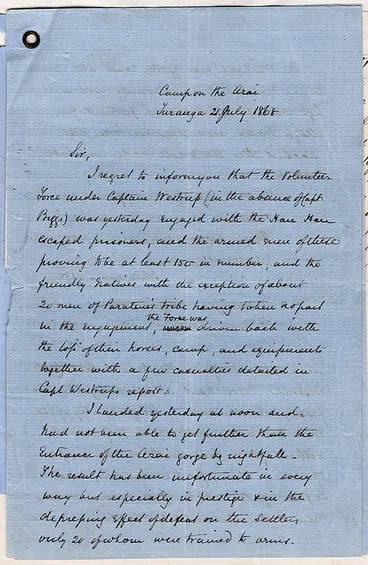 Camp on the Arai
Turanga 21 July 1868
Sir,
I regret to inform you that the Volunteer
Force under Captain Westrup (in the absence of Capt
Biggs) was yesterday engaged with the Hau Hau
escaped prisoners, and the armed men of these
proving to be at least 150 in number, and the
friendly Natives with the exception of about
20 men of Paratene's tribe having taken no part
in the engagement, the Force was driven back with
the loss of their horses, camp, and equipment
together with a few casualties detailed in
Capt Westrup's report.
I landed yesterday at noon and
had not been able to get further than the
Entrance of the Arai gorge by nightfall.
The result has been unfortunate in every
way but especially in prestige & in the
depressing effect of defeat on the Settlers,
only 20 of whom were trained to arms.